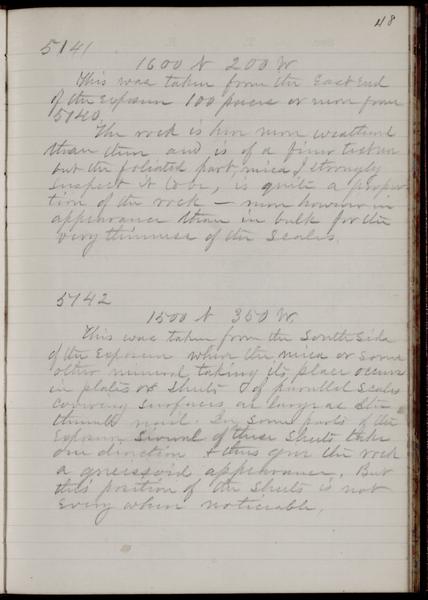 48
5141
1600 N 200 W
This was taken from the East End
of the Exposure 100 paces or more from
5140.
The rock is here more weathered
than there and is of a finer texture
but the foliated part, mica I strongly
suspect it to be, is quite a propor
tion of the rock — more however in
appearance than in bulk for the
very thinness of the Scales.
5142
1500 N 350 W
This was taken from the South Side
of the Exposure where the mica or some
other mineral taking its place occurs
in plates or sheets & of parallel scales
covering surfaces as large as the
thumb nail. In some parts of the
Exposure several of these sheets take
one direction & thus give the rock
a gneissoid appearance. But
this position of the sheets is not
every where noticeable.